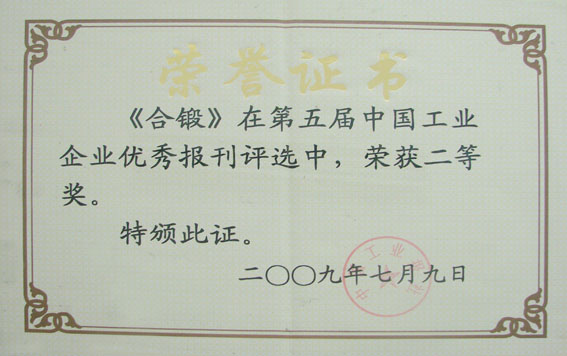 荣誉证书
《合锻》在第五届中国工业
企业优秀报刊评选中，荣获二等
奖。
特颁此证。
二〇〇九年七月九日